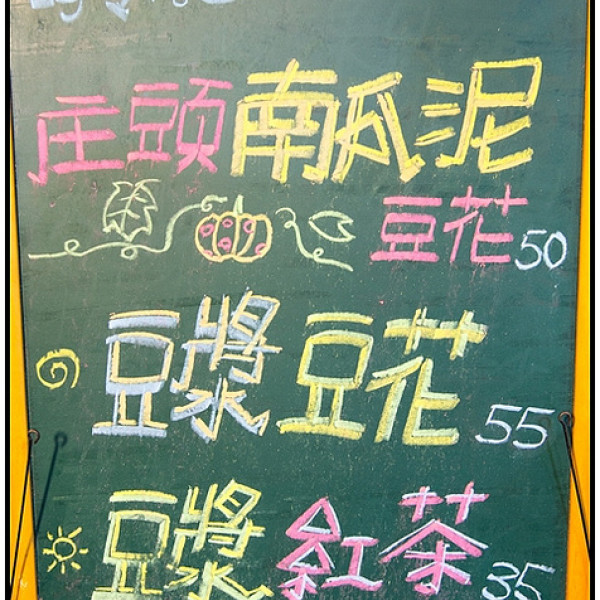 庄頭南瓜泥
豆花50
豆漿豆花55
豆漿紅茶35